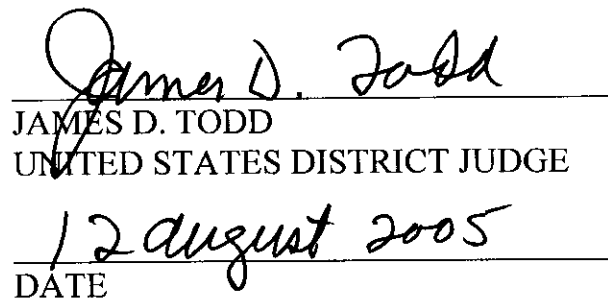 James D. Todd
JAMES D. TODD
UNITED STATES DISTRICT JUDGE
12 august 2005
DATE